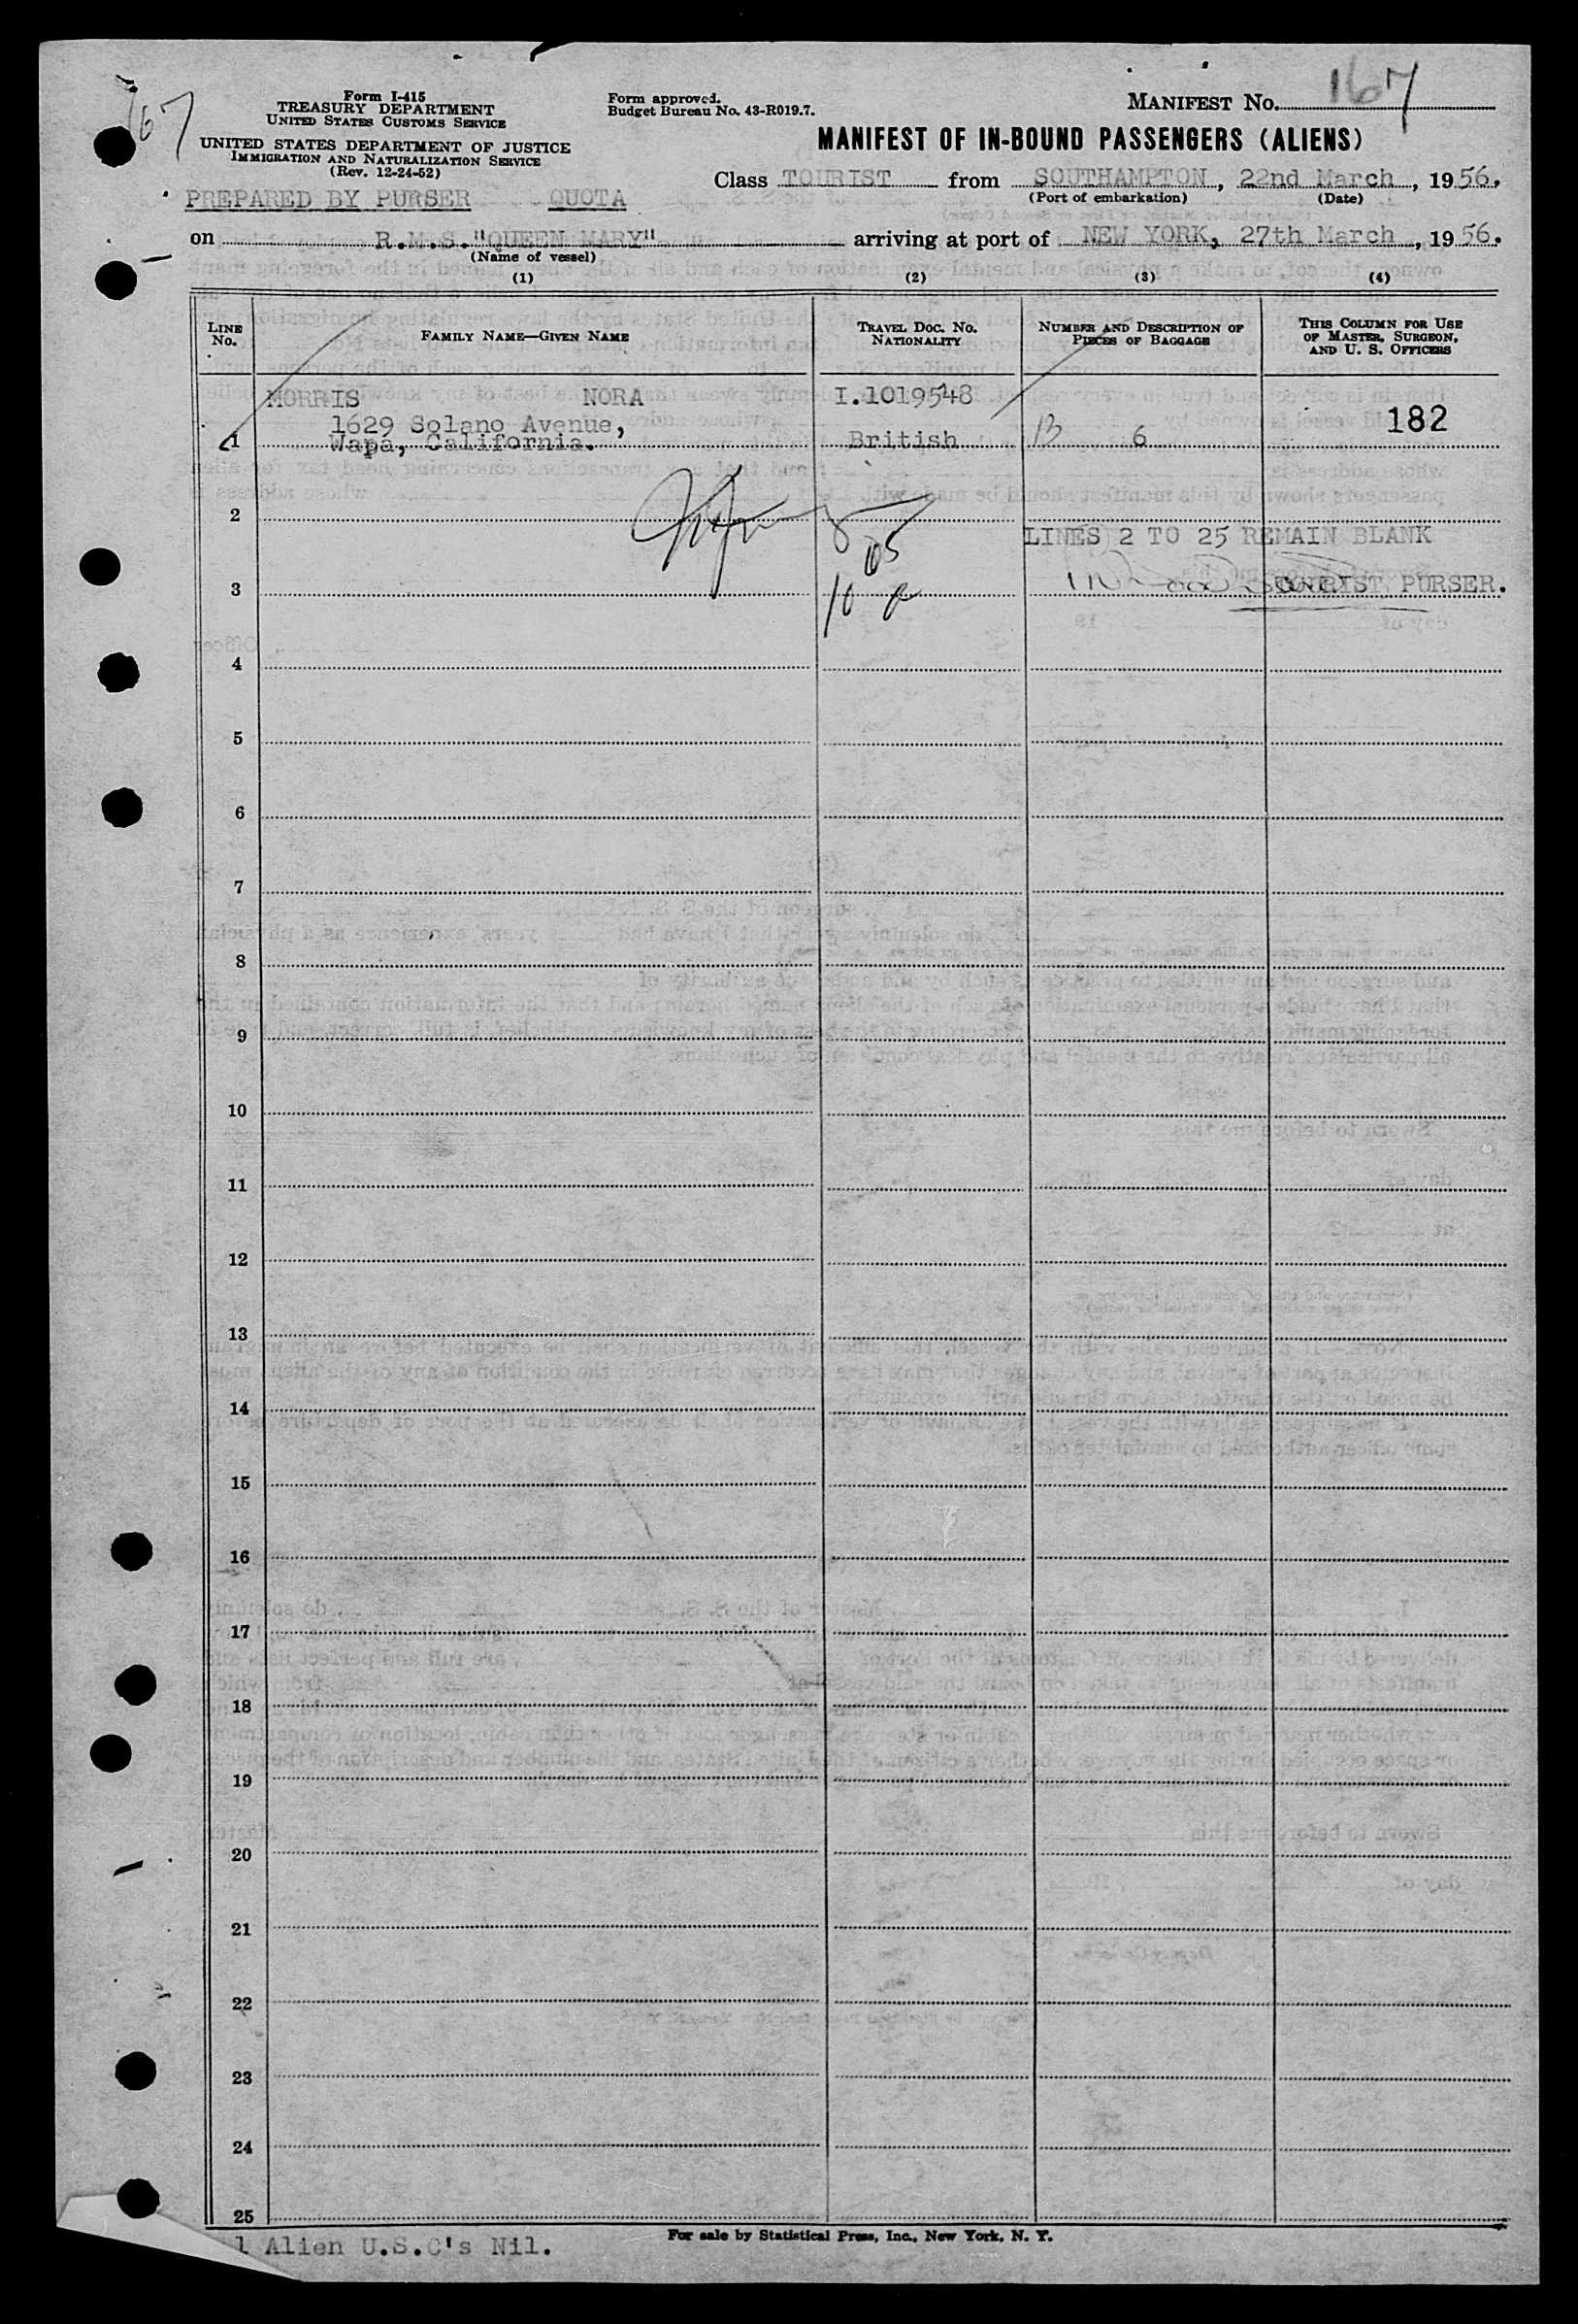 Form I-415
TREASURY DEPARTMENT
UNITED STATES CUSTOMS SERVICE
UNITED STATES DEPARTMENT OF JUSTICE
IMMIGRATION AND NATURALIZATION SERVICE
(Rev. 12-24-52)
Form approved.
Budget Bureau No. 43-R019.7.
MANIFEST NO. 167
167
MANIFEST OF IN-BOUND PASSENGERS (ALIENS)
Class TOURIST from SOUTHAMPTON, 22nd March, 1956.
(Port of embarkation) (Date)
PREPARED BY PURSER QUOTA
on R.M.S."QUEEN MARY" arriving at port of NEW YORK, 27th March, 1956.
(Name of vessel)
(1) (2) (3) (4)
LINE NO. FAMILY NAME—GIVEN NAME TRAVEL DOC. NO. NATIONALITY NUMBER AND DESCRIPTION OF PIECES OF BAGGAGE THIS COLUMN FOR USE OF MASTER, SURGEON, AND U. S. OFFICERS
MORRIS NORA I.1019548
1629 Solano Avenue, 182
1 Wapa, California. British B 6
2
LINES 2 TO 25 REMAIN BLANK
3 TOURIST PURSER.
4
5
6
7
8
9
10
11
12
13
14
15
16
17
18
19
20
21
22
23
24
25
1 Alien U.S.C's Nil.
For sale by Statistical Press, Inc., New York, N. Y.